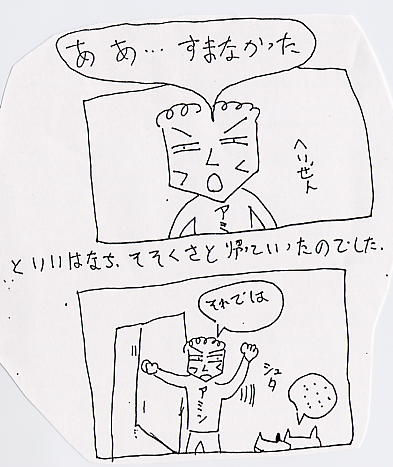 ああ…すまなかった
へいぜん
アミ
といいはなち、そそくさと帰っていったのでした.
それでは
アミン
シュタ